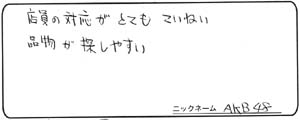 店員の対応がとても ていねい
品物が探しやすい
ニックネーム AKB48